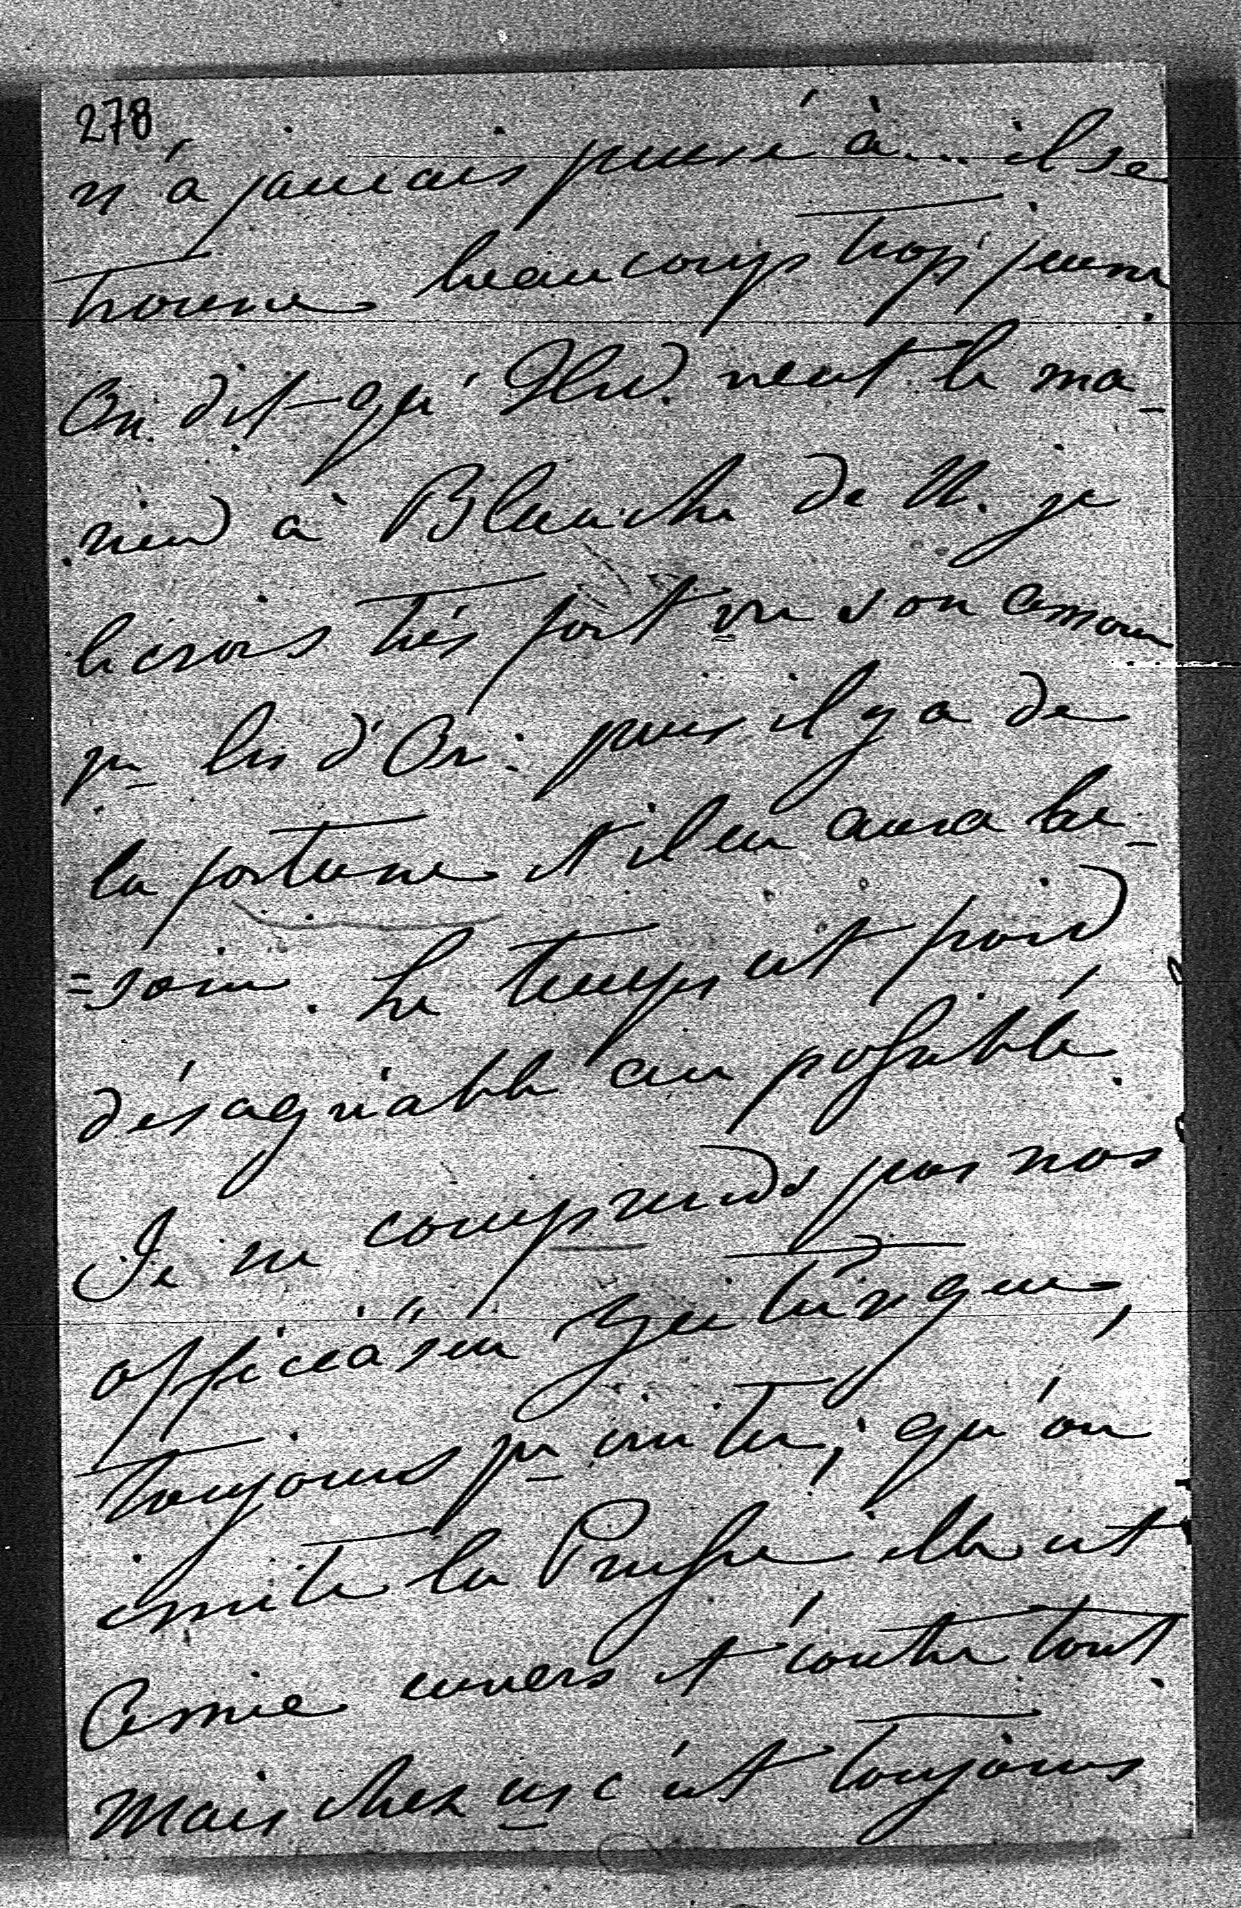 278
n'a jamais pensé à... il se
trouve beaucoup trop jeune
On dit qu' veut le ma-
rier à Blanche de N. je
le crois très fort vu son amour
pr les d'Or: puis il y a de
la fortune et il en aura be-
=soin. Le temps est froid
désagréable au possible.
Je ne comprends pas nos
toujours pr imiter; qu'on
imite la Prusse elle est
Amie envers et contre tout.
Mais chez ns c'est toujours